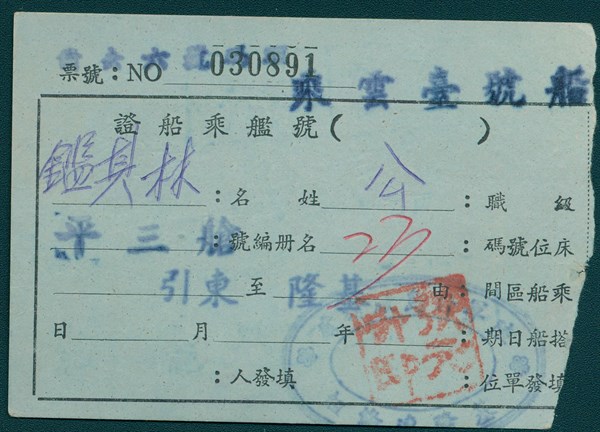 票號：NO 030891
乘雲臺號船
( )號艦乘船證
級職：公 姓名：林其鑑
床位號碼：23 名册編號：艙三平
乘船區間：由基隆至東引
搭船日期：年月日
填發單位：填發人：